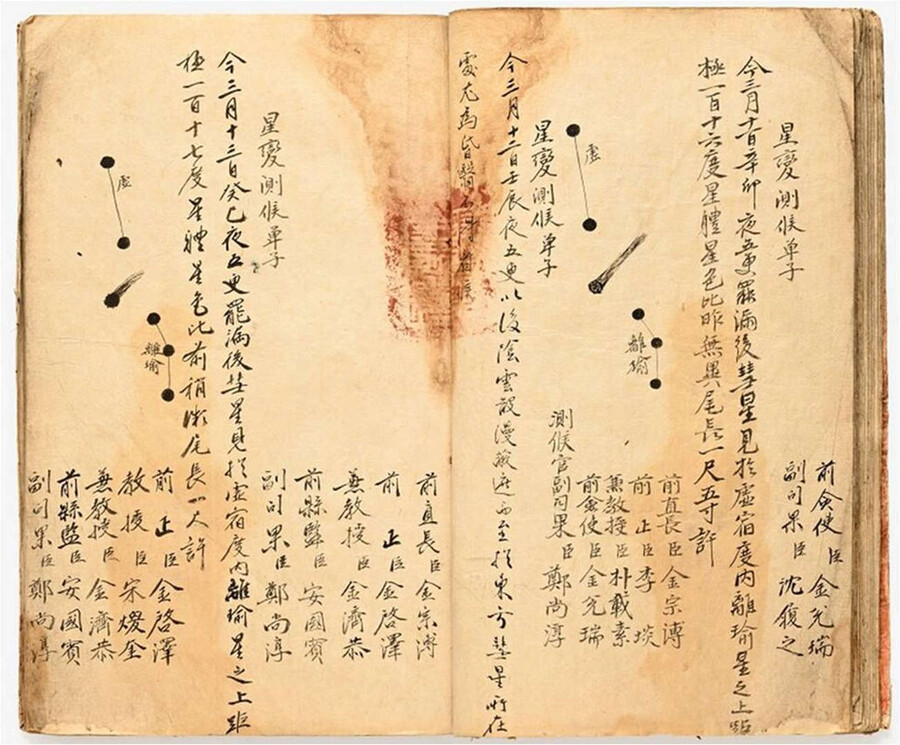 前僉使臣金兌瑞
副司果臣沈鍑之
星變測候單子
今三月十一日辛卯夜五更罷漏後彗星見於虛宿度內離瑜星之上距
極一百十六度星體星色比昨無異尾長一尺五寸許
虛
離瑜
前直長臣金宗溥
前正臣李埮
兼教授臣朴載素
前僉使臣金兌瑞
測候官副司果臣鄭尚淳
星變測候單子
今三月十二日壬辰夜五更以後陰雲散漫蔽遮而至於東方彗星所在
處尤為昏翳不得看候
前直長臣金宗溥
前正臣金啓澤
兼教授臣金濟恭
前縣監臣安國賓
副司果臣鄭尚淳
星變測候單子
今三月十三日癸巳夜五更罷漏後彗星見於虛宿度內離瑜星之上距
極一百十七度星體星色比前稍微尾長一尺許
虛
離瑜
前正臣金啓澤
教授臣宋
兼教授臣金濟恭
前縣監臣安國賓
副司果臣鄭尚淳